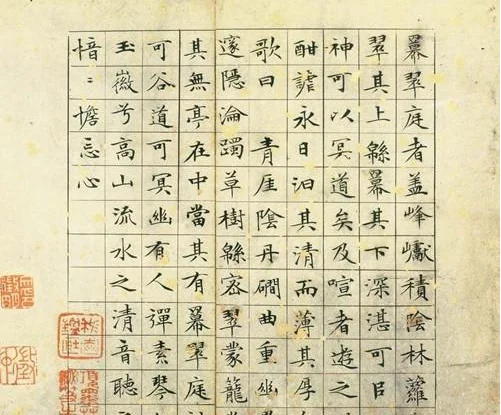 冪翠庭者盖峰巘積陰林蘿
翠其上緜冪其下深湛可
神可以冥道矣及喧者遊之
酣謔永日汩其清而薄其厚
歌曰 青厓陰丹磵曲重幽
邃隱淪躅草樹緜密翠蒙籠
其無亭在中當其有冪翠庭
可谷道可冥幽有人彈素琴
玉徽兮高山流水之清音聽
愔〻憺忘心